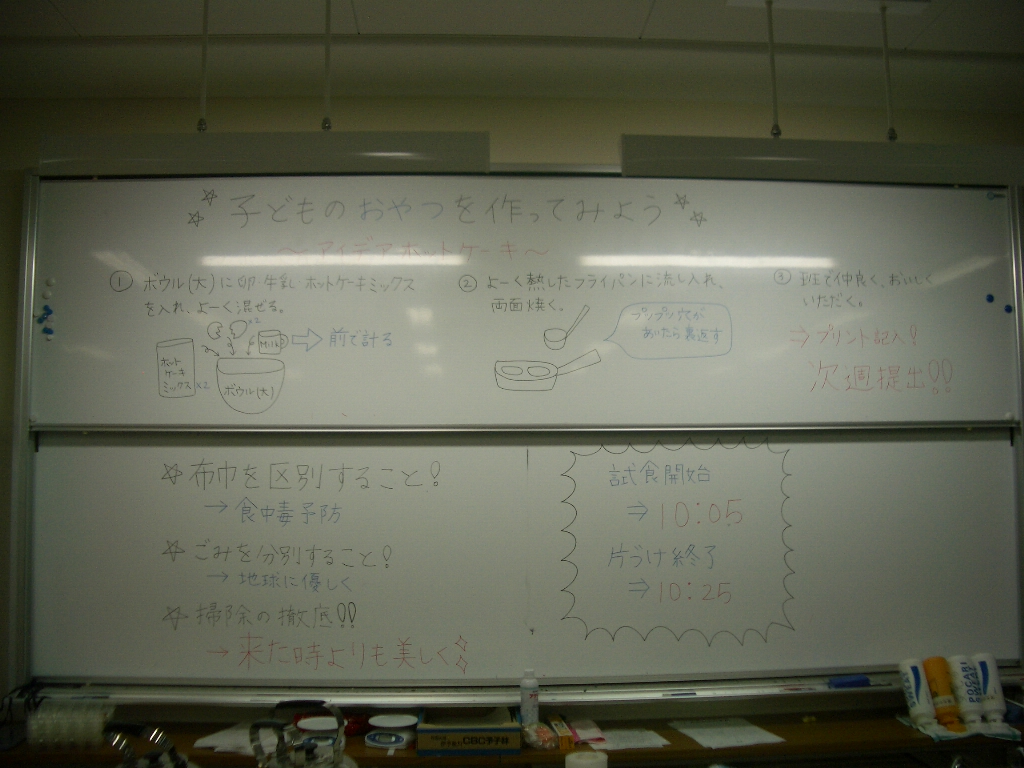 ☆☆子どものおやつを作ってみよう☆☆
〜アイデアホットケーキ〜
① ボウル(大)に卵・牛乳・ホットケーキミックス
を入れ、よーく混ぜる。
×2
Milk
⇨ 前で計る
ホット
ケーキ
ミックス ×2
ボウル(大)
② よーく熱したフライパンに流し入れ、
両面焼く。
プツプツ穴が
あいたら裏返す
③ 班で仲良く、おいしく
いただく。
⇒プリント記入!
次週提出!!
☆布巾を区別すること!
→食中毒予防
☆ごみを分別すること!
→地球に優しく
☆掃除の徹底!!
→来た時よりも美しく
試食開始
⇒10:05
片づけ終了
⇒10:25
POCARI
SWEAT